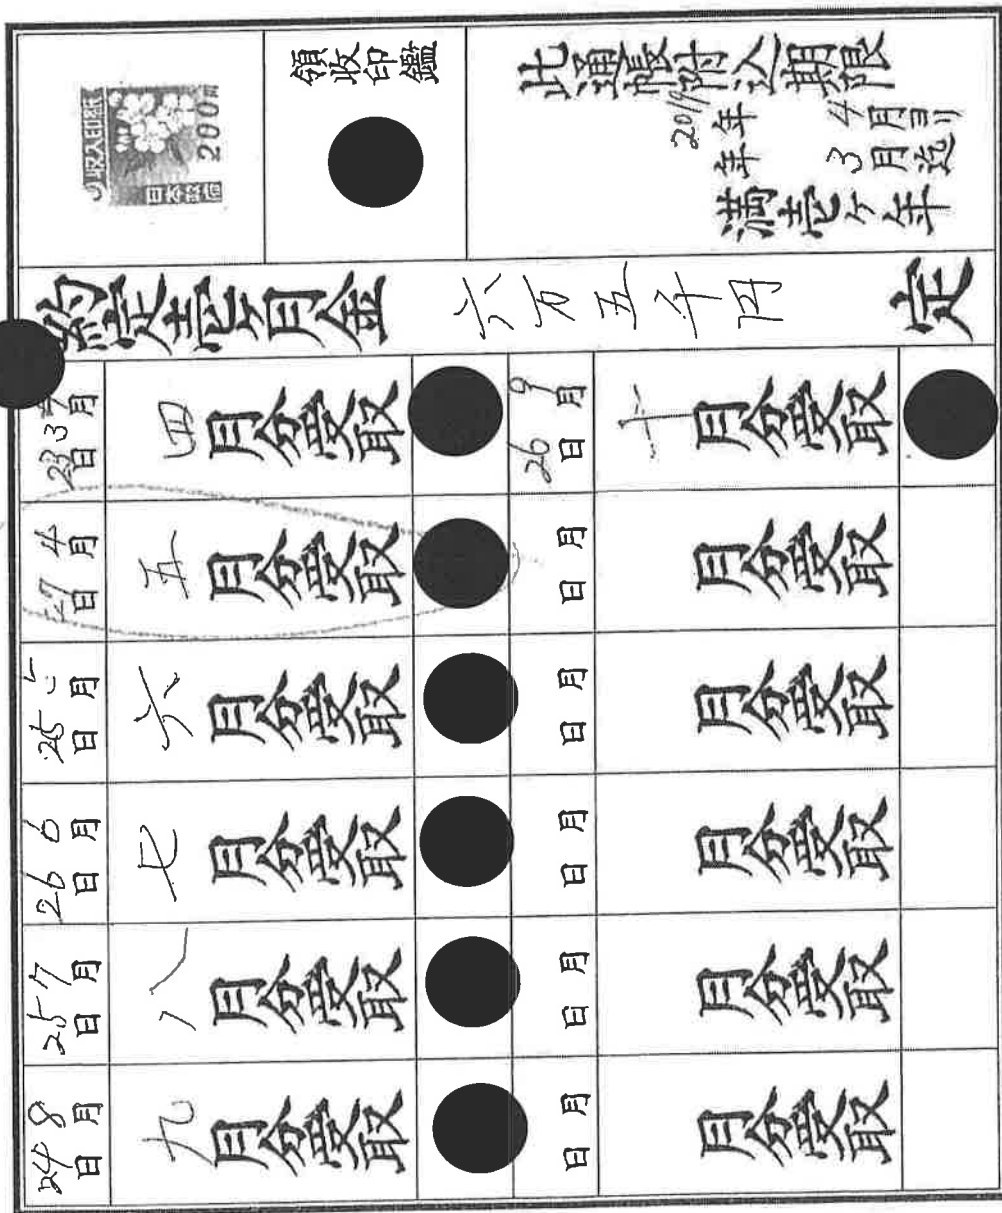 此通帳附込期限
2019年 4月ヨリ
年 3月迄
満壱ケ年
領收印鑑
収入印紙
200円
日本政府
約定壱ケ月金 六万五千円 定
3月23日 四月分受取
4月27日 五月分受取
5月25日 六月分受取
6月26日 七月分受取
7月25日 八月分受取
8月24日 九月分受取
9月26日 十月分受取
月 日 月分受取
月 日 月分受取
月 日 月分受取
月 日 月分受取
月 日 月分受取